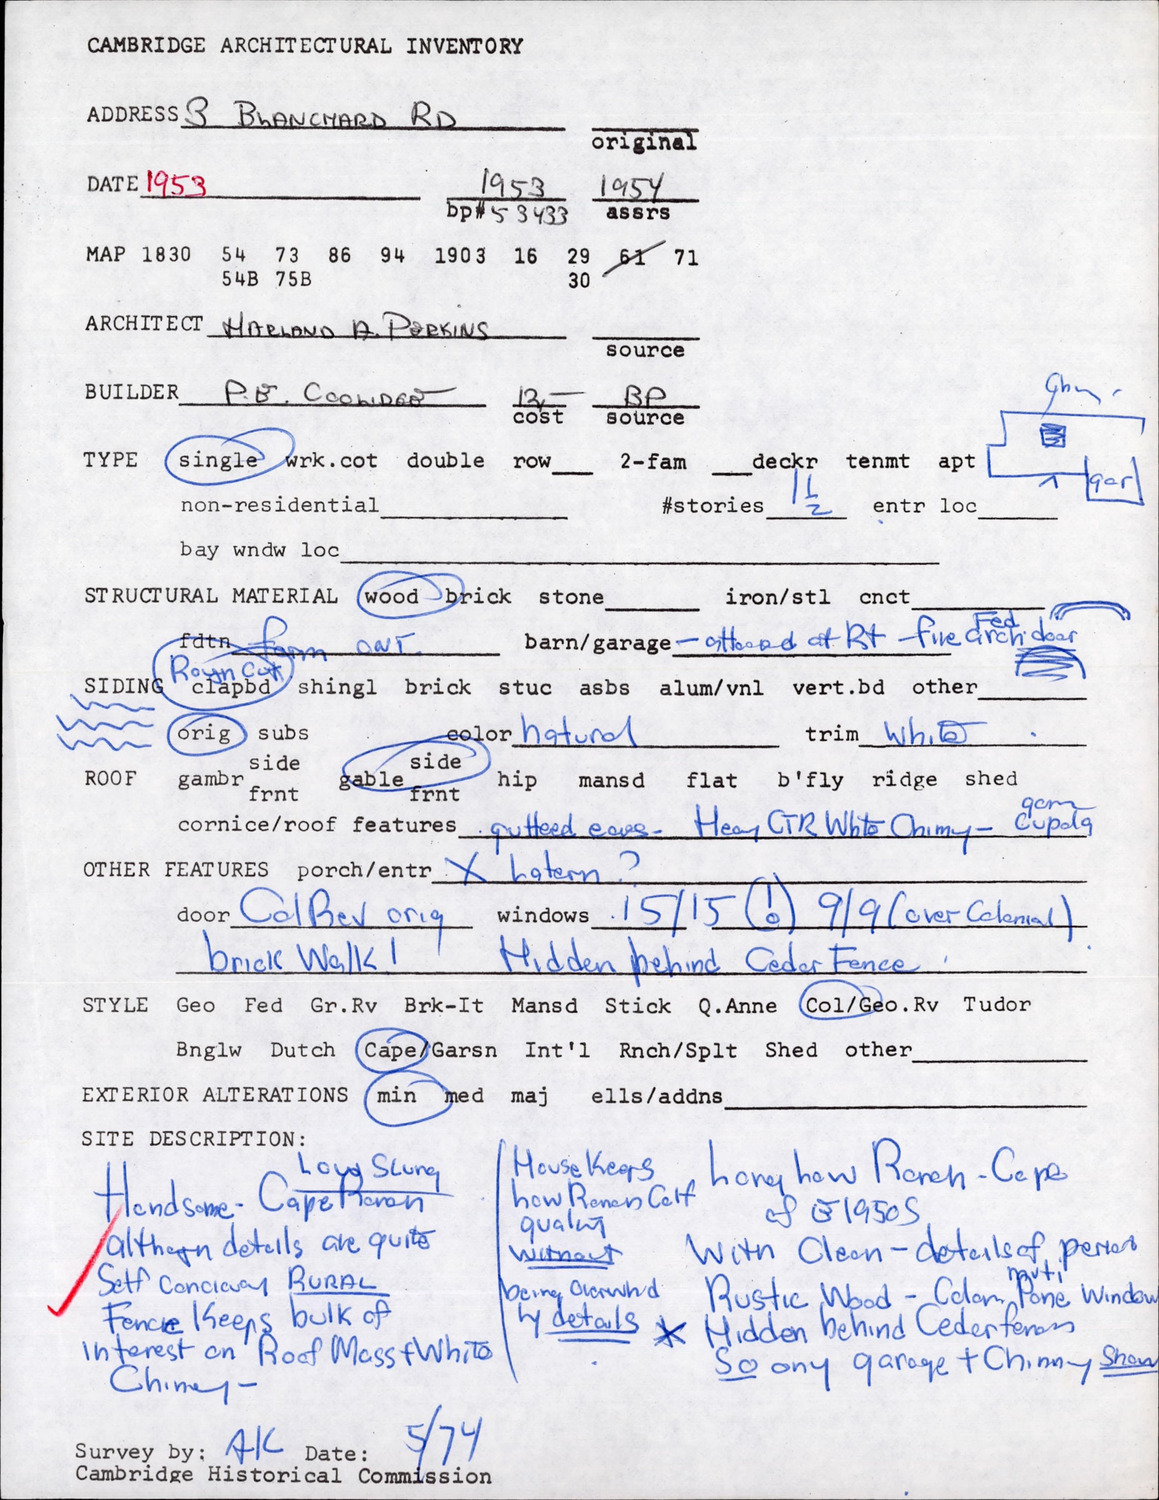 CAMBRIDGE ARCHITECTURAL INVENTORY
ADDRESS 3 BLANCHARD RD
original
DATE 1953 1953 1954
bp# 53433 assrs
MAP 1830 54 73 86 94 1903 16 29 61 71
54B 75B 30
ARCHITECT HARLAND A. PERKINS
source
BUILDER P.E. COOLIDGE 12,— BP
cost source
TYPE single wrk.cot double row 2-fam deckr tenmt apt
gar
non-residential #stories 1 1/2 entr loc
bay wndw loc
STRUCTURAL MATERIAL wood brick stone iron/stl cnct
fdtn barn/garage — at Rt - Fed arch door
Rough Cut
SIDING clapbd shingl brick stuc asbs alum/vnl vert.bd other
orig subs color natural trim White
ROOF gambr side frnt gable side frnt hip mansd flat b'fly ridge shed
cornice/roof features Heavy CTR White Chimny — Cupola
OTHER FEATURES porch/entr X Latern?
door Col Rev orig windows 15/15 (!) 9/9 (over Colonial)
brick Walk! Hidden behind Ceder Fence
STYLE Geo Fed Gr.Rv Brk-It Mansd Stick Q.Anne Col/Geo.Rv Tudor
Bnglw Dutch Cape/Garsn Int'l Rnch/Splt Shed other
EXTERIOR ALTERATIONS min med maj ells/addns
SITE DESCRIPTION:
Low Slung
Handsome - Cape Ranch
although details are quite
Self RURAL
Fence Keeps bulk of
interest on Roof Mass + White
Chimey —
House Keeps
low Ranch
quality
without
being
by details
Long low Ranch - Cape
of 1950s
With Clean - details of period
Rustic Wood - Colon multi Pane Window
* Hidden behind Ceder fence
So ony garage + Chimny Show
Survey by: AK Date: 5/74
Cambridge Historical Commission